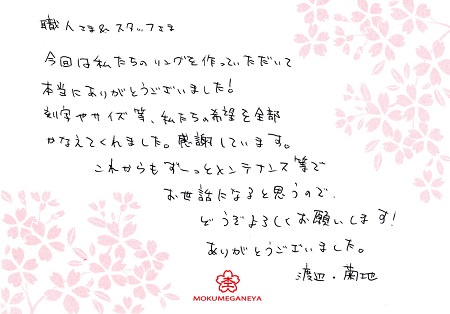 職人さま&スタッフさま
今回は私たちのリングを作っていただいて
本当にありがとうございました!
刻字やサイズ等、私たちの希望を全部
かなえてくれました。感謝しています。
これからもずーっとメンテナンス等で
お世話になると思うので、
どうぞよろしくお願いします!
ありがとうございました。
渡辺・菊地
MOKUMEGANEYA